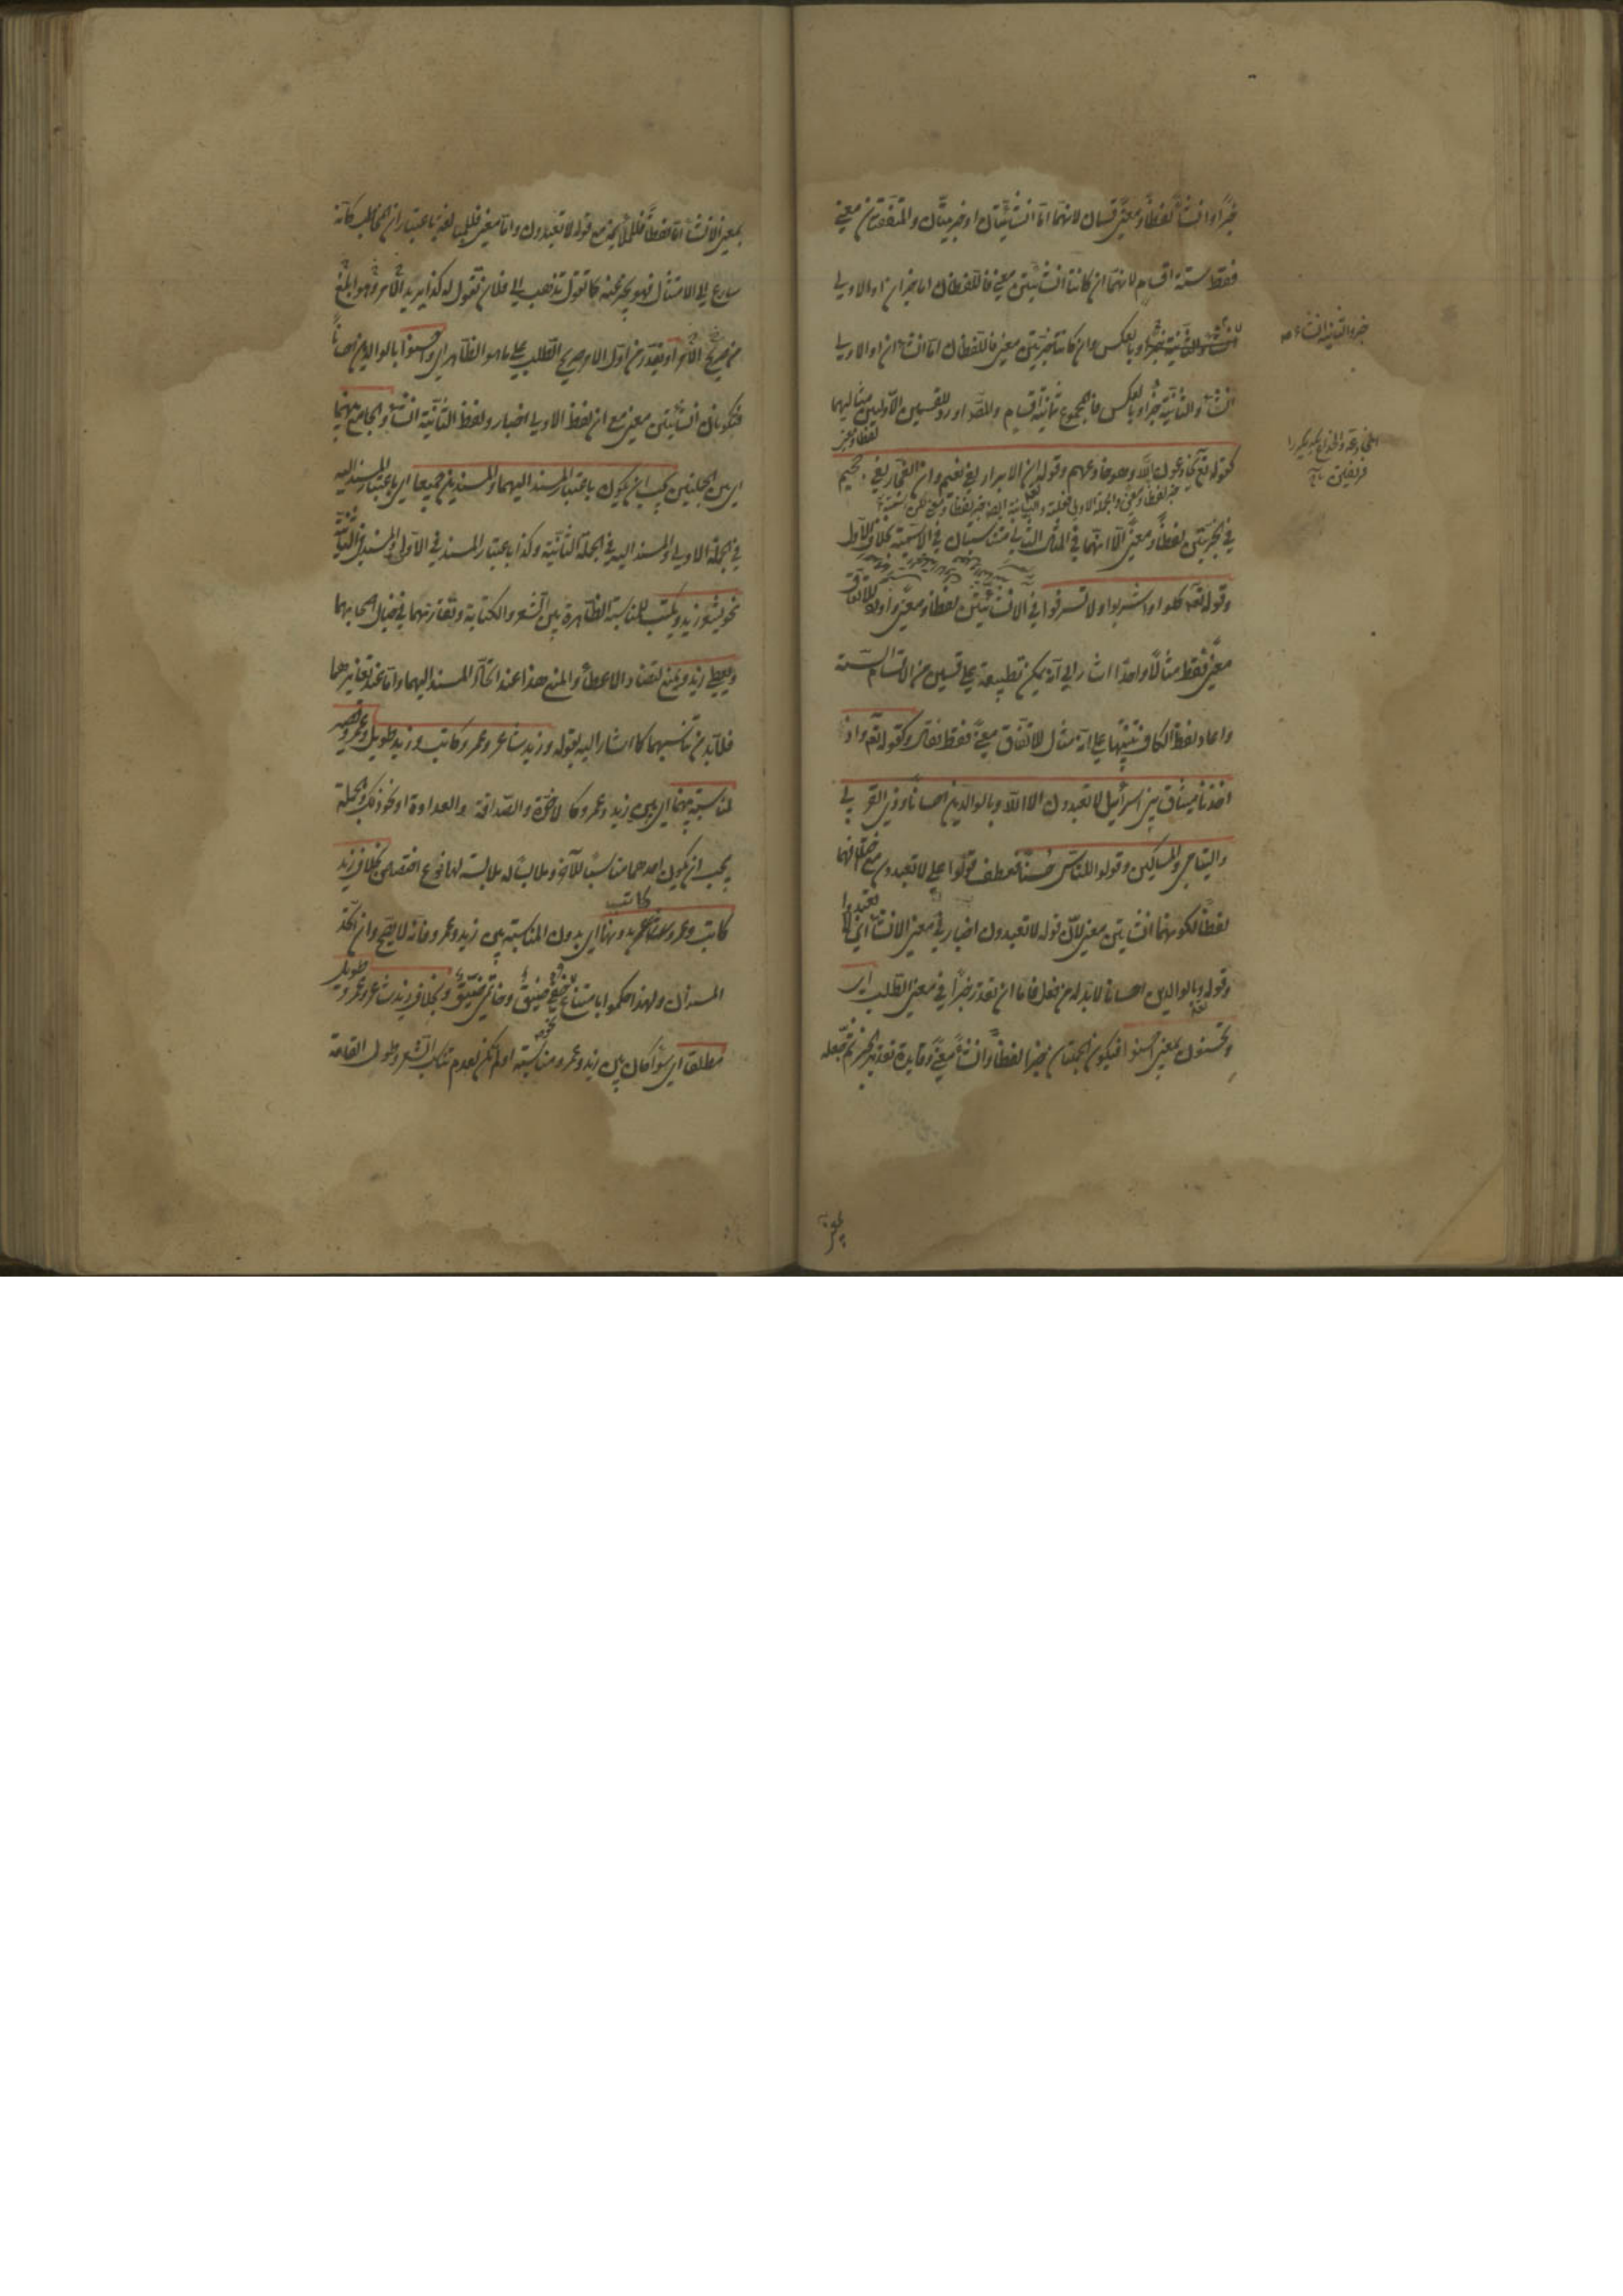 خبرا او انشاء لفظا ومعنى قسمان لانهما اما انشائيتان او خبريتان والمتفقتان معنى
فقط ستة اقسام لانهما ان كانتا انشائيتين معنى فاللفظان اما خبران او الاولى
خبر والثانية انشاء صح
انشاء والثانية خبر او بالعكس وان كانتا خبريتين معنى فاللفظان اما انشاءان او الاولى
انشاء والثانية خبر او بالعكس فالمجموع ثمانية اقسام والمصنف اورد للقسمين الاولين مثاليهما
لفظا ومعنى
كقوله تع يخادعون الله وهو خادعهم وقوله ان الابرار لفي نعيم وان الفجار لفي جحيم
في الخبريتين لفظا ومعنى الا انهما في المثال الثاني متناسبتان في الاسمية بخلاف الاول
وقوله تع كلوا واشربوا ولا تسرفوا في الانشائيتين لفظا ومعنى واورد للاتفاق
معنى فقط مثالا واحدا اشار الى انه يمكن تطبيقه على قسمين من الاقسام الستة
واعاد لفظ الكاف تنبيها على انه مثال للاتفاق معنى فقط فقال وكقوله تع واذ
اخذنا ميثاق بني اسرائيل لا تعبدون الا الله وبالوالدين احسانا وذي القربى
واليتامى والمساكين وقولوا للناس حسنا فعطف قولوا على لا تعبدون مع اختلافهما
لفظا لكونهما انشائيتين معنى لان قوله لا تعبدون اخبار في معنى الانشاء اي لا
تعبدوا
وقوله وبالوالدين احسانا لا بد له من فعل فاما ان يقدر خبرا في معنى الطلب اي
وتحسنون بمعنى احسنوا فيكون الجملتان خبرا لفظا وانشاء معنى وفايدة تقدير الخبر ثم جعله
بمعنى الانشاء اما لفظا فللملائمة مع قوله لا تعبدون واما معنى فللمبالغة باعتبار ان المخاطب كانه
سارع الى الامتثال فهو يخبر عنه كما تقول تذهب الى فلان تقول له كذا يريد الامر وهو ابلغ
من صريح الامر او يقدر من اول الامر صريح الطلب على ما هو الظاهر اي واحسنوا بالوالدين احسانا
فتكونان انشائيتين معنى مع ان لفظ الاولى اخبار ولفظ الثانية انشاء والجامع بينهما
اي بين الجملتين يجب ان يكون باعتبار المسند اليهما والمسندين جميعا اي باعتبار المسند اليه
في الجملة الاولى والمسند اليه في الجملة الثانية وكذا باعتبار المسند في الاولى والمسند في الثانية
نحو يشعر زيد ويكتب للمناسبة الظاهرة بين الشعر والكتابة وتقارنهما في خيال اصحابهما
ويعطي زيد ويمنع لتضاد الاعطاء والمنع هذا عند اتحاد المسند اليهما واما عند تغايرهما
فلا بد من تناسبهما كما اشار اليه بقوله وزيد شاعر وعمرو كاتب وزيد طويل وعمرو قصير
لمناسبة بينهما اي بين زيد وعمرو كالاخوة والصداقة والعداوة او نحو ذلك وبالجملة
يجب ان يكون احدهما مناسبا للآخر وملابسا له ملابسة لها نوع اختصاص بخلاف زيد
كاتب
كاتب وعمرو شاعر بدونها اي بدون المناسبة بين زيد وعمرو فانه لا يصح وان اتحد
المسندان ولهذا حكموا بامتناع نحو خفي ضيق وخاتمي ضيق وبخلاف زيد شاعر وعمرو طويل
مطلقا اي سواء كان بين زيد وعمرو مناسبة او لم تكن لعدم تناسب الشعر وطول القامة